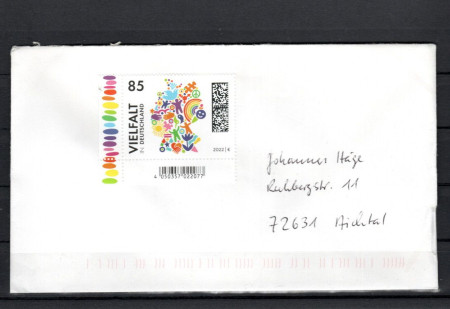 85
VIELFALT
DEUTSCHLAND
2022
4 050357 022077
Johannes Häge
Ruhbergstr. 11
72631 Aichtal